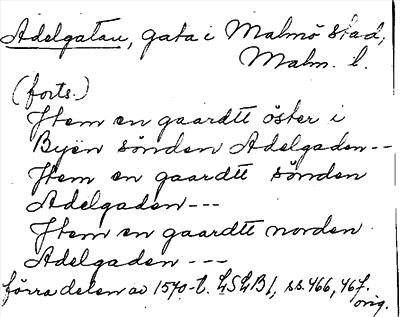 Adelgatan, gata i Malmö stad,
Malm. l.
(forts.)
Jtem en gaardtt öster i
Byen sönden Adelgaden --
Jtem en gaardtt sönden
Adelgaden ---
Jtem en gaardtt norden
Adelgaden ---
förra delen av 1570-t. LSLB1, ss. 466, 467.
orig.